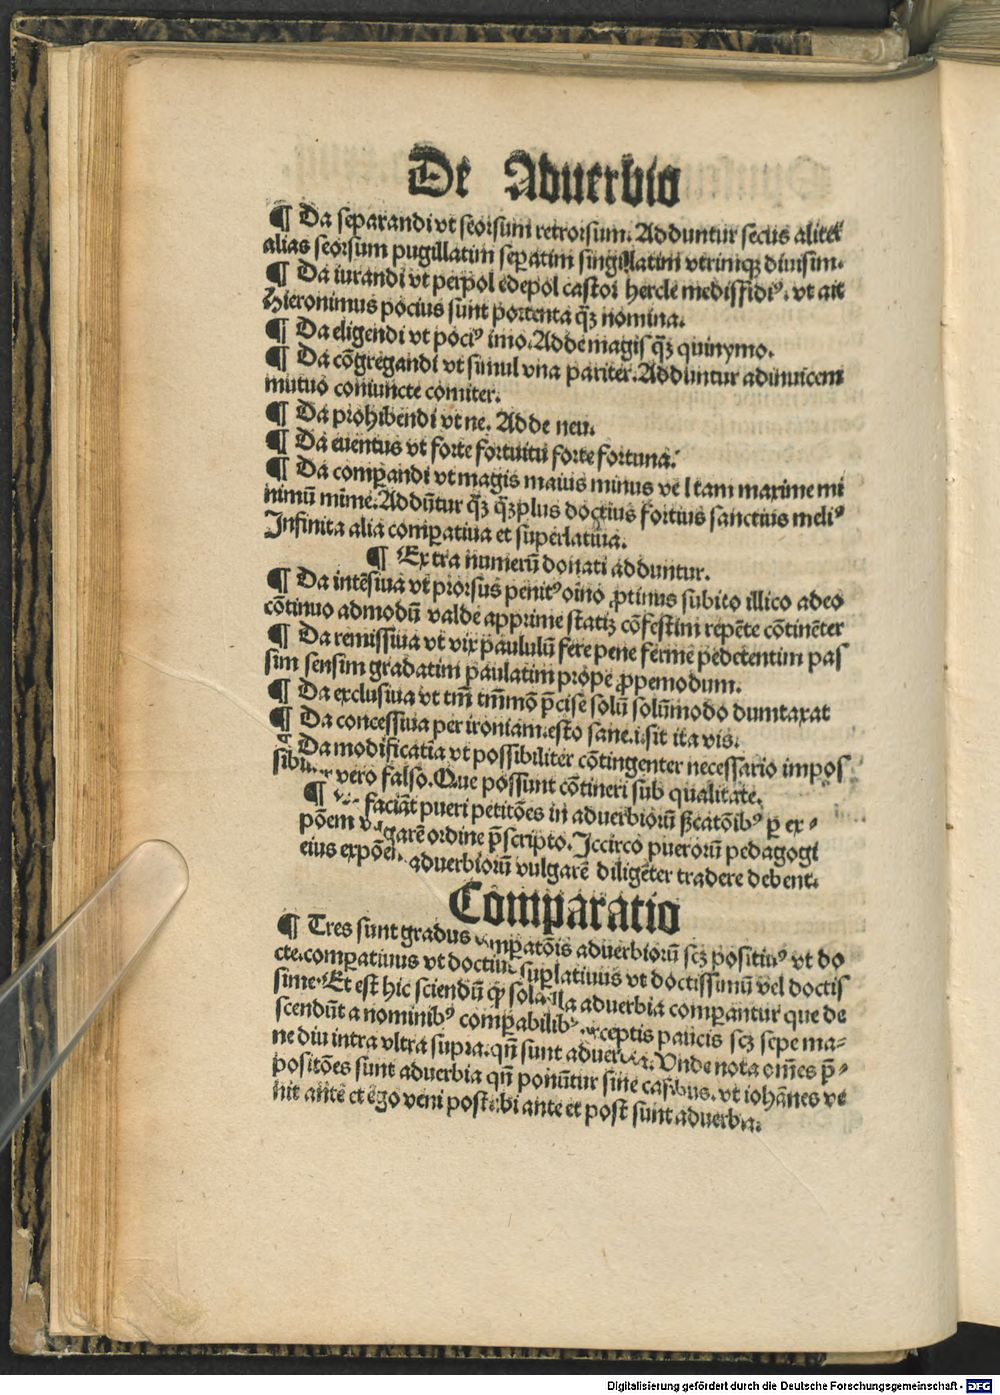 De Aduerbio
¶ Da separandi vt seorsum retrorsum. Adduntur secus aliter
alias seorsum pugillatim sepatim singillatim vtrinqꝫ diuisim.
¶ Da iurandi vt perpol edepol castor hercle medissidiꝰ. vt ait
Hieronimus pocius sunt portenta qꝫ nomina.
¶ Da eligendi vt pociꝰ imo. Adde magis qꝫ quinymo.
¶ Da cōgregandi vt simul vna pariter. Adduntur adinuicem
mutuo coniuncte comiter.
¶ Da prohibendi vt ne. Adde neu.
¶ Da euentus vt forte fortuitu forte fortuna.
¶ Da comꝑandi vt magis maius minus vel tam maxime mi
nimū mīme. Addūtur qꝫ qꝫplus doctius fortius sanctius meliꝰ
Infinita alia comꝑatiua et superlatiua.
¶ Extra numerū donati adduntur.
¶ Da intēsiua vt prorsus penitꝰ oīno ꝓtinus subito illico adeo
cōtinuo admodū valde apprime statiꝫ cōfestim repēte cōtinēter
¶ Da remissiua vt vix paululū fere pene ferme pedetentim pas
sim sensim gradatim paulatim prope ꝓpemodum.
¶ Da exclusiua vt tm̄ tm̄mō p̄cise solū solūmodo dumtaxat
¶ Da concessiua per ironiam. esto sane. i. sit ita vis.
¶ Da modificatia vt possibiliter cōtingenter necessario impos
vero falso. Que possunt cōtineri sub qualitate.
¶ faciāt pueri petitōes in aduerbiorū ꝑ ex
pōem ordine p̄scripto. Iccirco puerorū pedagogi
eius aduerbiorū vulgarē diligēter tradere debent.
Comparatio
¶ Tres sunt gradus aduerbiorū scꝫ positiuꝰ vt do
cte. comꝑatiuus vt doctius suꝑlatiuus vt doctissimū vel doctis
sime. Et est hic sciendū ꝙ sola illa aduerbia comꝑantur que de
scendūt a nominibꝰ comꝑabilibꝰ. exceptis paucis scꝫ sepe ma-
ne diu intra vltra supra. qn̄ sunt aduerbia. Vnde nota om̄es p̄-
positōes sunt aduerbia qn̄ ponūtur sine casibus. vt iohānes ve
nit ante et ego veni post. ibi ante et post sunt aduerbia.
Digitalisierung gefördert durch die Deutsche Forschungsgemeinschaft - DFG